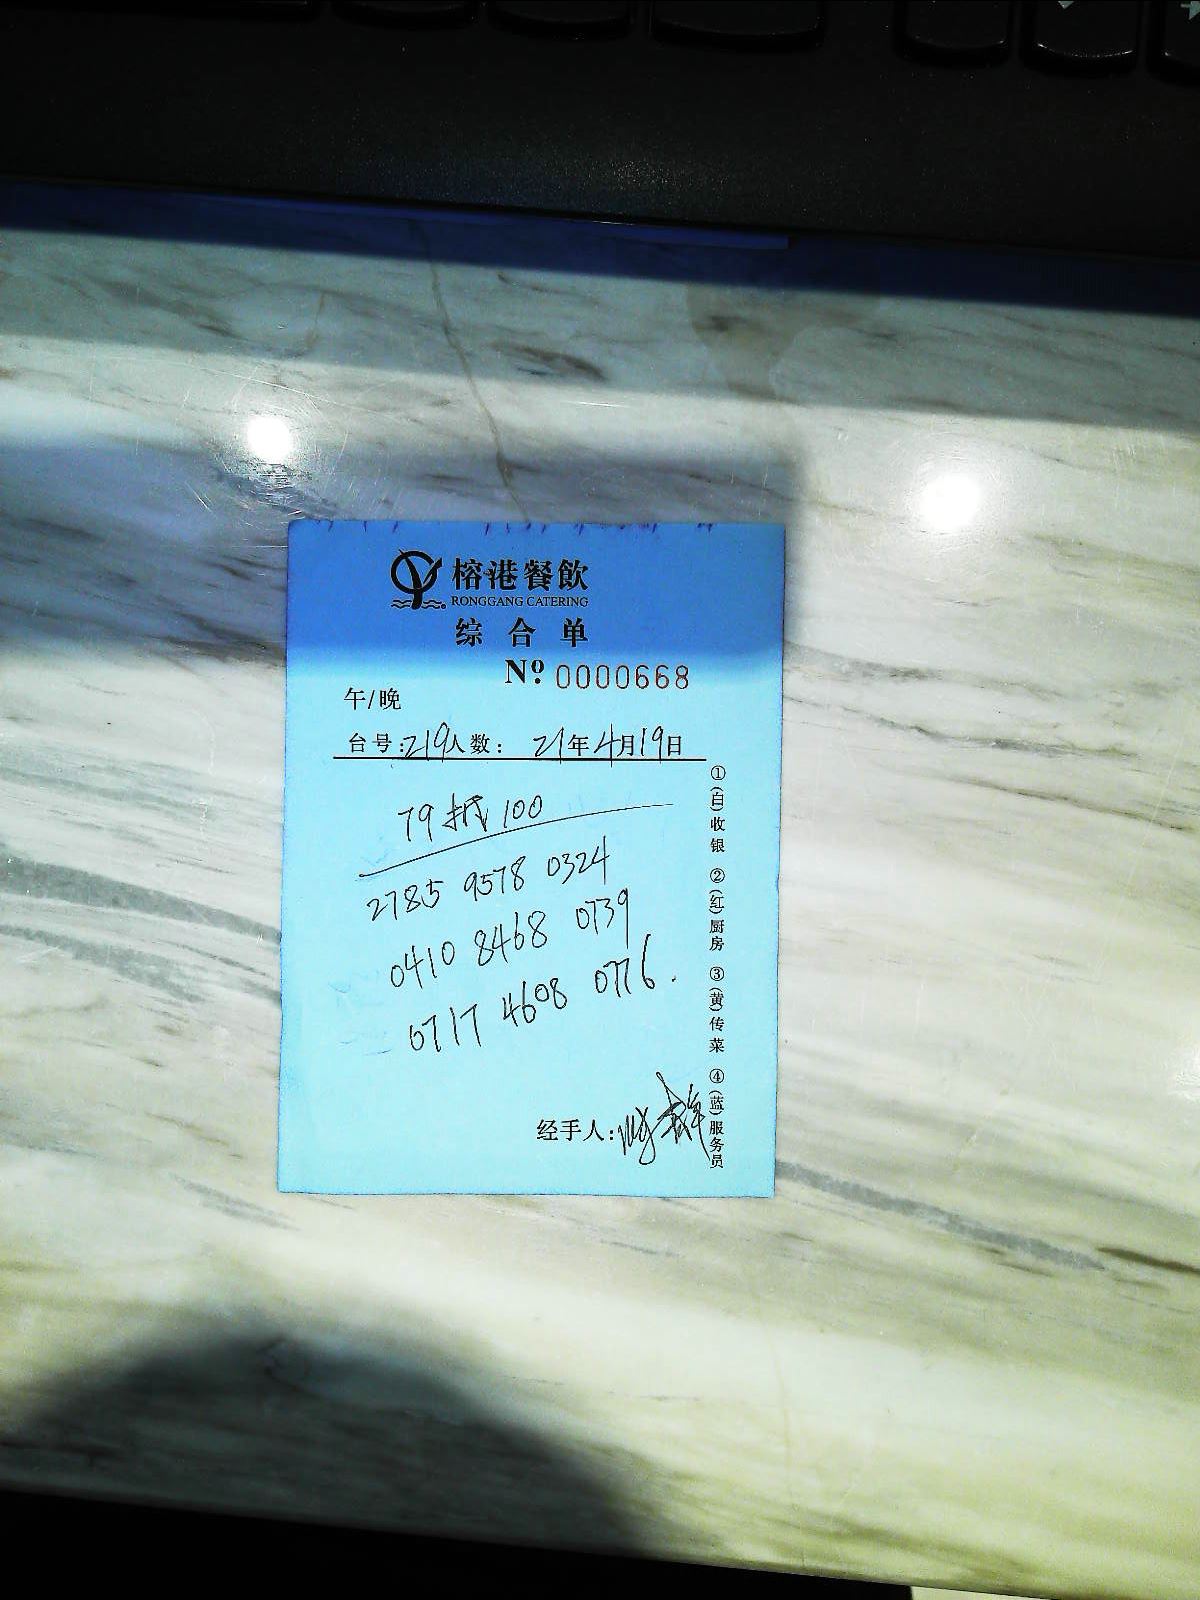 榕港餐飲
RONGGANG CATERING
综合单
Nº 0000668
午/晚
台号:219人数: 21年4月19日
79抵100
2785 9578 0324
0410 8468 0739
0717 4608 0776.
经手人:
①(白)收银 ②(红)厨房 ③(黄)传菜 ④(蓝)服务员